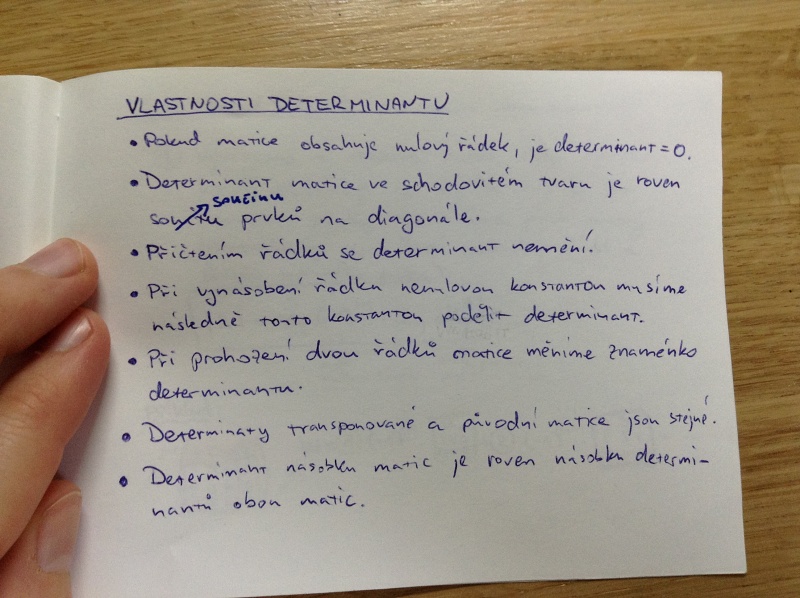 VLASTNOSTI DETERMINANTU
• Pokud matice obsahuje nulový řádek, je determinant = 0.
• Determinant matice ve schodovitém tvaru je roven
součinu
součtu prvků na diagonále.
• Přičtením řádků se determinant nemění.
• Při vynásobení řádku nenulovou konstantou musíme
následně touto konstantou podělit determinant.
• Při prohození dvou řádků matice měníme znaménko
determinantu.
• Determinaty transponované a původní matice jsou stejné.
• Determinant násobku matic je roven násobku determi-
nantů obou matic.